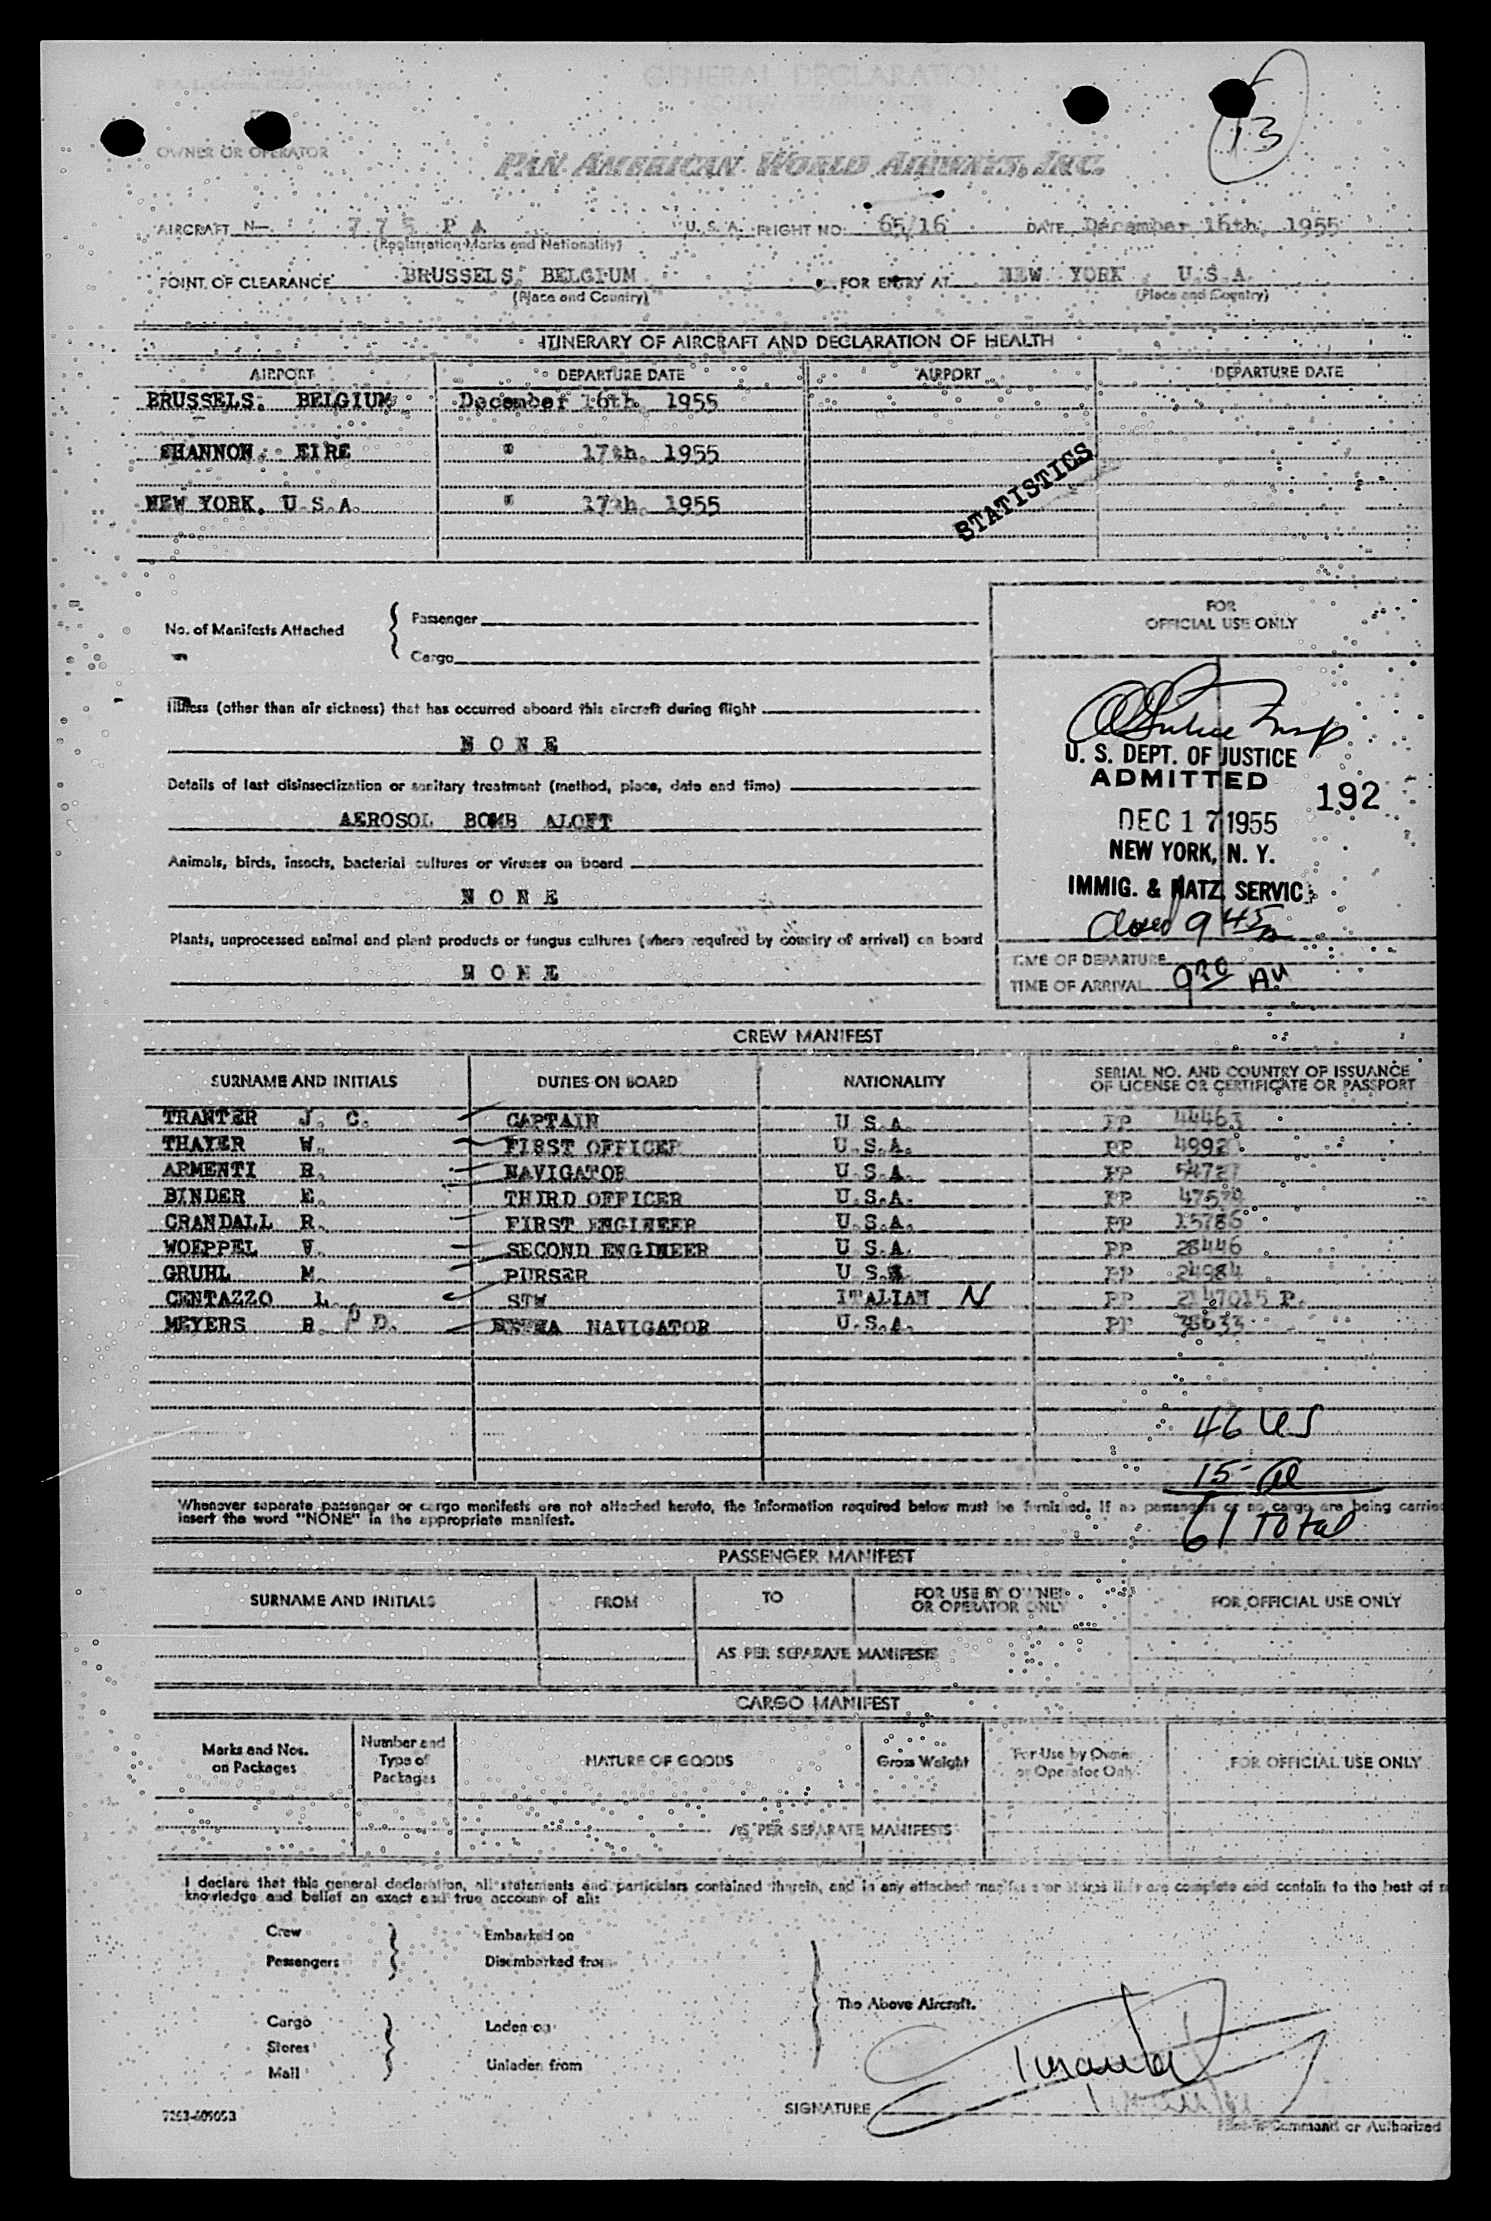 GENERAL DECLARATION
13
OWNER OR OPERATOR
PAN AMERICAN WORLD AIRWAYS, INC.
AIRCRAFT N— 775 PA U. S. A. FLIGHT NO. 65/16 DATE December 16th, 1955
(Registration Marks and Nationality)
POINT OF CLEARANCE BRUSSELS, BELGIUM FOR ENTRY AT NEW YORK, U.S.A.
(Place and Country) (Place and Country)
ITINERARY OF AIRCRAFT AND DECLARATION OF HEALTH
AIRPORT DEPARTURE DATE AIRPORT DEPARTURE DATE
BRUSSELS, BELGIUM December 16th, 1955
SHANNON, EIRE " 17th, 1955
NEW YORK, U.S.A. " 17th, 1955
STATISTICS
No. of Manifests Attached { Passenger
Cargo
FOR
OFFICIAL USE ONLY
Illness (other than air sickness) that has occurred aboard this aircraft during flight
N O N E
Details of last disinsectization or sanitary treatment (method, place, date and time)
AEROSOL BOMB ALOFT
Animals, birds, insects, bacterial cultures or viruses on board
N O N E
Plants, unprocessed animal and plant products or fungus cultures (where required by country of arrival) on board
N O N E
U. S. DEPT. OF JUSTICE
ADMITTED 192
DEC 17 1955
NEW YORK, N. Y.
IMMIG. & NATZ. SERVIC
Closed 9 45
TIME OF DEPARTURE
TIME OF ARRIVAL 9 30 AM
CREW MANIFEST
SURNAME AND INITIALS DUTIES ON BOARD NATIONALITY SERIAL NO. AND COUNTRY OF ISSUANCE OF LICENSE OR CERTIFICATE OR PASSPORT
TRANTER J. C. CAPTAIN U.S.A. PP 44463
THAYER W. FIRST OFFICER U.S.A. PP
ARMENTI R. NAVIGATOR U.S.A. PP
BINDER E. THIRD OFFICER U.S.A. PP
CRANDALL R. FIRST ENGINEER U.S.A. PP 15786
WOEPPEL V. SECOND ENGINEER U.S.A. PP 28446
GRUHL M. PURSER U.S.A. PP 24984
CENTAZZO L. STW ITALIAN N PP 2147015 P.
MEYERS R. D. EXTRA NAVIGATOR U.S.A. PP 38633
46 US
15 al
61 Total
Whenever separate passenger or cargo manifests are not attached hereto, the information required below must be furnished. If no passengers or no cargo are being carried
insert the word "NONE" in the appropriate manifest.
PASSENGER MANIFEST
SURNAME AND INITIALS FROM TO FOR USE BY OWNER OR OPERATOR ONLY FOR OFFICIAL USE ONLY
AS PER SEPARATE MANIFESTS
CARGO MANIFEST
Marks and Nos. on Packages Number and Type of Packages NATURE OF GOODS Gross Weight For Use by Owner or Operator Only FOR OFFICIAL USE ONLY
AS PER SEPARATE MANIFESTS
I declare that this general declaration, all statements and particulars contained therein, and in any attached manifests or stores lists are complete and contain to the best of
knowledge and belief an exact and true account of all:
Crew Embarked on
Passengers Disembarked from
The Above Aircraft.
Cargo Laden on
Stores
Mail Unladen from
Tranter
SIGNATURE
Pilot in Command or Authorized
7263-609053